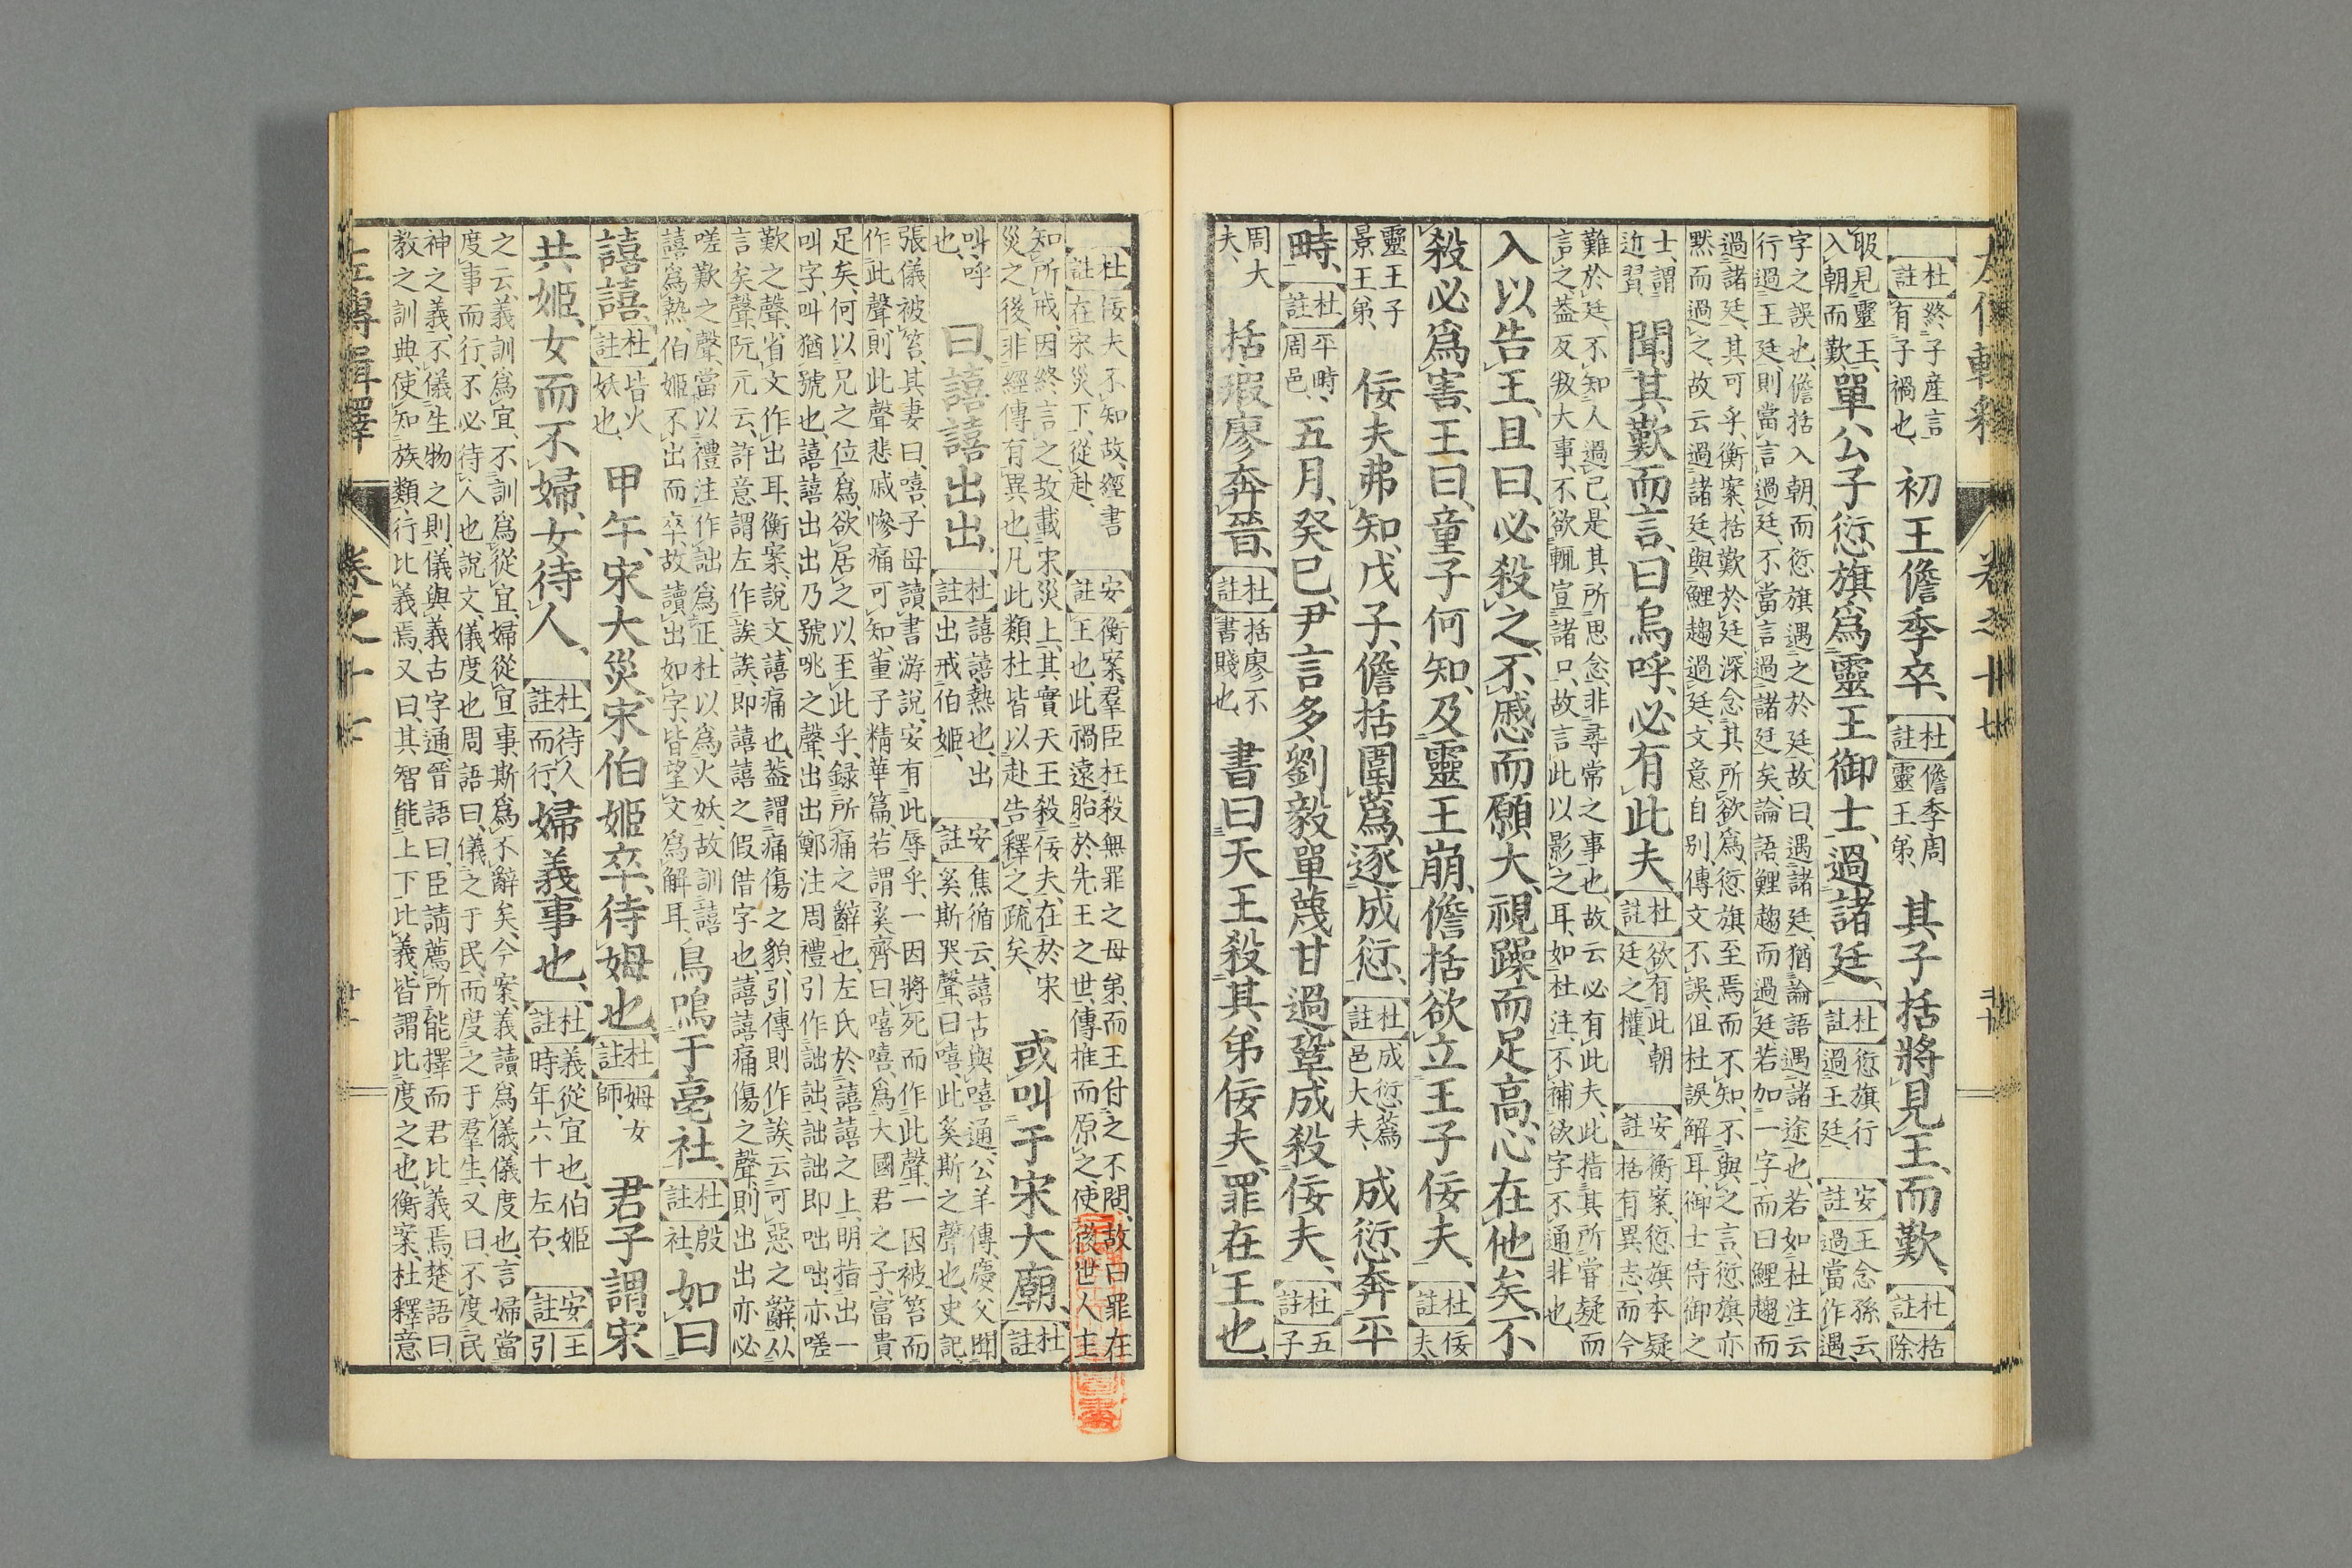 左傳輯釋 卷之十七 二十
杜註 終子產言有子禍也、初王儋季卒、杜註 儋季周靈王弟、其子括將見王、而歎、杜註 括除
服見靈王、入朝而歎、單公子愆旗爲靈王御士、過諸廷、杜註 愆旗行過王廷、安註 王念孫云、過當作遇、
字之誤也、儋括入朝、而愆旗遇之於廷、故曰、遇諸廷、猶論語遇諸途也、若如杜注云
行過王廷、則當言過廷、不當言過諸廷矣、論語鯉趨而過廷、若加一字、而曰鯉趨而
過諸廷、其可乎、衡案、括歎於廷、深念其所欲爲、愆旗至焉而不知、不與之言、愆旗亦
默而過之、故云過諸廷、與鯉趨過廷、文意自別、傳文不誤、但杜誤解耳、御士侍御之
士、謂近習、聞其歎而言、曰烏呼、必有此夫、杜註 欲有此朝廷之權、安註 衡案、愆旗本疑括有異志、而今
難於廷、不知人過己、是其所思念、非尋常之事也、故云必有此夫、此指其所嘗疑而
言之、蓋反叛大事、不欲輒宣諸口、故言此以影之耳、如杜注、不補欲字不通、非也、
入以告王、且曰、必殺之、不慼而願大、視躁而足高、心在他矣、不
殺必爲害、王曰、童子何知、及靈王崩、儋括欲立王子佞夫、杜註 佞夫、
靈王子景王弟、佞夫弗知、戊子、儋括圍蒍、逐成愆、杜註 成愆蒍邑大夫、成愆奔平
時、杜註 平時、周邑、五月、癸巳、尹言多劉毅單蔑甘過鞏成殺佞夫、杜註 五子
周大夫、括瑕廖奔晉、杜註 括廖不書賤也、書曰天王殺其弟佞夫、罪在王也、
杜註 佞夫不知故、經書在宋災下、從赴、安註 衡案、羣臣枉殺無罪之母弟、而王付之不問、故曰罪在王也、此禍遠胎於先王之世、傳推而原之、使後世人主
知所戒、因終言之、故載宋災上、其實天王殺佞夫、在於宋災之後、非經傳有異也、凡此類、杜皆以赴告釋之、疏矣、或叫于宋大廟、杜註
叫、呼也、曰、譆譆出出、杜註 譆譆熱也、出出戒伯姬、安註 焦循云、譆古與嘻通、公羊傳、慶父聞奚斯哭聲、曰嘻、此奚斯之聲也、史記、
張儀被笞、其妻曰、嘻、子母讀書游說、安有此辱乎、一因將死而作此聲、一因被笞而
作此聲、則此聲悲戚慘痛可知、董子精華篇、若謂奚齊曰、嘻嘻、爲大國君之子、富貴
足矣、何以兄之位爲、欲居之以至此乎、録所痛之辭也、左氏於譆譆之上、明指出一
叫字、叫猶號也、譆譆出出乃號咷之聲、出出鄭注周禮引作詘詘、詘詘即咄咄、亦嗟
歎之聲、省文作出耳、衡案、說文、譆痛也、蓋謂痛傷之貌、引傳則作誒、云可惡之辭、从
言矣聲、阮元云、許意謂左作誒誒、即譆譆之假借字也、譆譆痛傷之聲、則出出亦必
嗟歎之聲、當以禮注作詘爲正、杜以爲火妖、故訓譆譆爲熱、伯姬不出而卒、故讀出如字、皆望文爲解耳、鳥鳴于亳社、杜註 殷社、如曰
譆譆、杜註 皆火妖也、甲午、宋大災、宋伯姬卒、待姆也、杜註 姆、女師、君子謂宋
共姬、女而不婦、女待人、杜註 待人而行、婦義事也、杜註 義從宜也、伯姬時年六十左右、安註 王引
之云、義訓爲宜、不訓爲從宜、婦從宜事、斯爲不辭矣、今案、義讀爲儀、儀度也、言婦當
度事而行、不必待人也、說文、儀度也、周語曰、儀之于民、而度之于羣生、又曰、不度民
神之義、不儀生物之則、儀與義古字通、晉語曰、臣請薦所能擇而君比義焉、楚語曰、
教之訓典、使知族類、行比義焉、又曰、其智能上下比義、皆謂比度之也、衡案、杜釋意
左傳輯釋 卷之十七